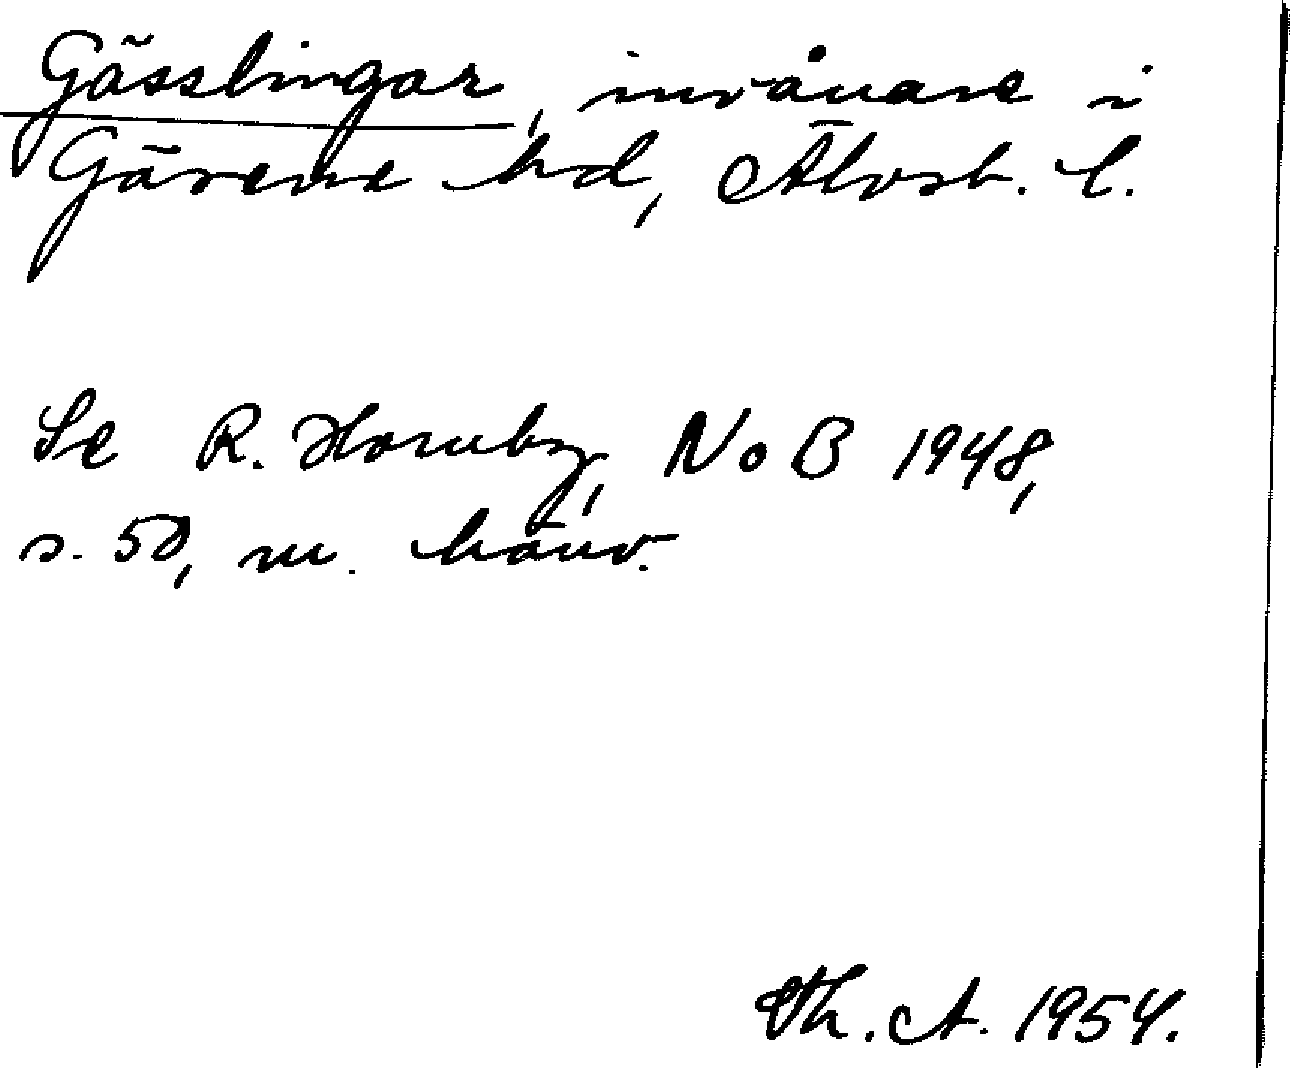 Gässlingar, invånare i
Gävene hd, Älvsb. l.
Se R. Hornby, NoB 1948,
s. 50, m. hänv.
Th. A. 1954.